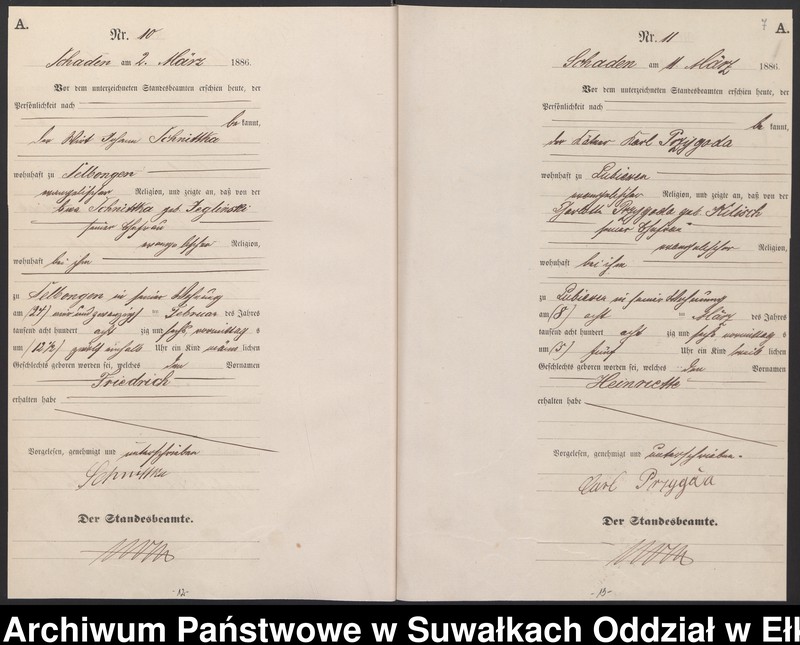 A.
Nr. 10
Schaden am 2. März 1886.
Vor dem unterzeichneten Standesbeamten erschien heute, der
Persönlichkeit nach
be kannt,
der Wirt Johann Schnittka
wohnhaft zu Selbongen
evangelischer Religion, und zeigte an, daß von der
Schnittka geb.
seiner Ehefrau
evangelischer Religion,
wohnhaft bei ihm
zu Selbongen in seiner Wohnung
am (24) vier und zwanzigsten Februar des Jahres
tausend acht hundert acht zig und sechs vormittag s
um (12½) zwölf einhalb Uhr ein Kind männ lichen
Geschlechts geboren worden sei, welches den Vornamen
Friedrich
erhalten habe
Vorgelesen, genehmigt und unterschrieben
Schnittka
Der Standesbeamte.
-12-
7
A.
Nr. 11
Schaden am 11. März 1886
Vor dem unterzeichneten Standesbeamten erschien heute, der
Persönlichkeit nach
be kannt,
der Käthner Karl Przygoda
wohnhaft zu Lubiewen
evangelischer Religion, und zeigte an, daß von der
Charlotte Przygoda geb. Kilisch
seiner Ehefrau
evangelischer Religion,
wohnhaft bei ihm
zu Lubiewen in seiner Wohnung
am (8) acht März des Jahres
tausend acht hundert acht zig und sechs vormittag s
um (5) fünf Uhr ein Kind weib lichen
Geschlechts geboren worden sei, welches den Vornamen
Heinriette
erhalten habe
Vorgelesen, genehmigt und unterschrieben.
Carl Przygoda
Der Standesbeamte.
-13-
Archiwum Państwowe w Suwałkach Oddział w Ełk